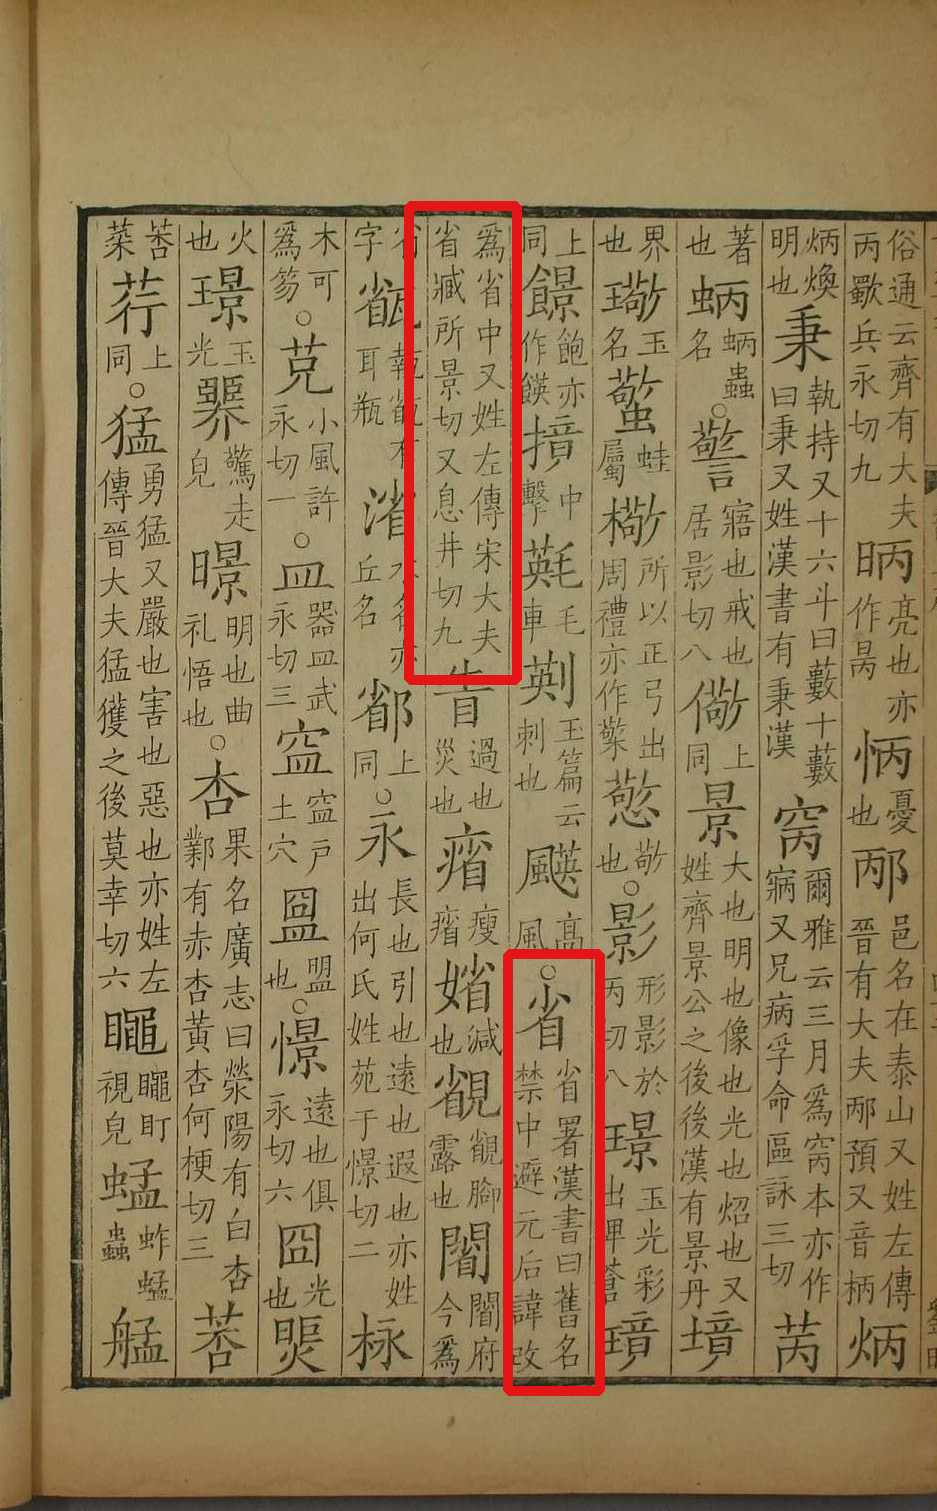 俗通云齊有大夫丙歜兵永切九昞亮也亦作昺怲憂也邴邑名在泰山又姓左傳晉有大夫邴預又音柄炳
炳煥明也秉執持又十六斗曰藪十藪曰秉又姓漢書有秉漢窉爾雅云三月為窉本亦作寎又兄病孚命區詠三切苪
著也蛃蛃蟲名○警寤也戒也居影切八儆上同景大也明也像也光也炤也又姓齊景公之後後漢有景丹境
界也璥玉名蟼蛙屬㯳所以正弓出周禮亦作檠憼敬也○影形影於丙切八璟玉光彩出埤蒼璄
上同䭘飽亦作中擊毛車玉篇云刺也高風○省省署漢書曰舊名禁中避元后諱改
為省中又姓左傳宋大夫省臧所景切又息井切九眚過也災也瘦媘減也腳露也府今為
省字有耳瓶渻水名亦丘名上同○永長也引也遠也遐也亦姓出何氏姓苑于憬切二栐
木可為笏○小風許永切一○皿器皿武永切三戶土穴盟也○憬遠也俱永切六囧光也
火也璟玉光臩驚走皃暻明也曲礼悟也○杏果名廣志曰滎陽有白杏鄴有赤杏黃杏何梗切三莕
莕菜荇上同○猛勇猛又嚴也害也惡也亦姓左傳晉大夫猛獲之後莫幸切六盯視皃蜢蚱蜢蟲艋